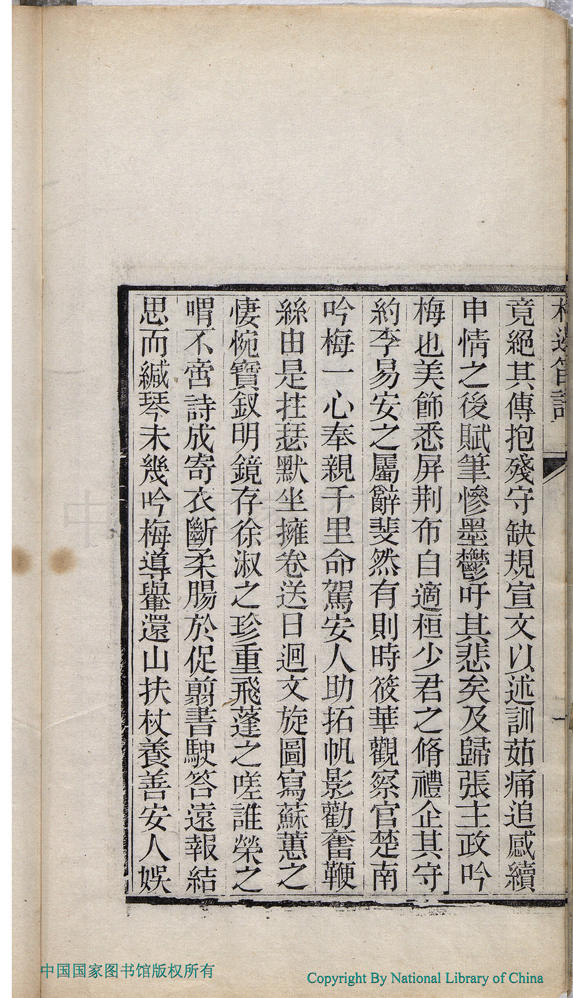 竟絕其傳抱殘守缺規宣文以述訓茹痛追感續
申情之後賦筆慘墨鬱吁其悲矣及歸張主政吟
梅也美飾悉屏荆布自適桓少君之脩禮企其守
約李易安之屬辭斐然有則時筱華觀察官楚南
吟梅一心奉親千里命駕安人助拓帆影勸奮鞭
絲由是拄瑟默坐擁卷送日迴文旋圖寫蘇蕙之
悽惋寶釵明鏡存徐淑之珍重飛蓬之嗟誰榮之
喟不啻詩成寄衣斷柔腸於促翦書駛答遠報結
思而緘琴未幾吟梅導轝還山扶杖養善安人娛
中国国家图书馆版权所有
Copyright By National Library of China